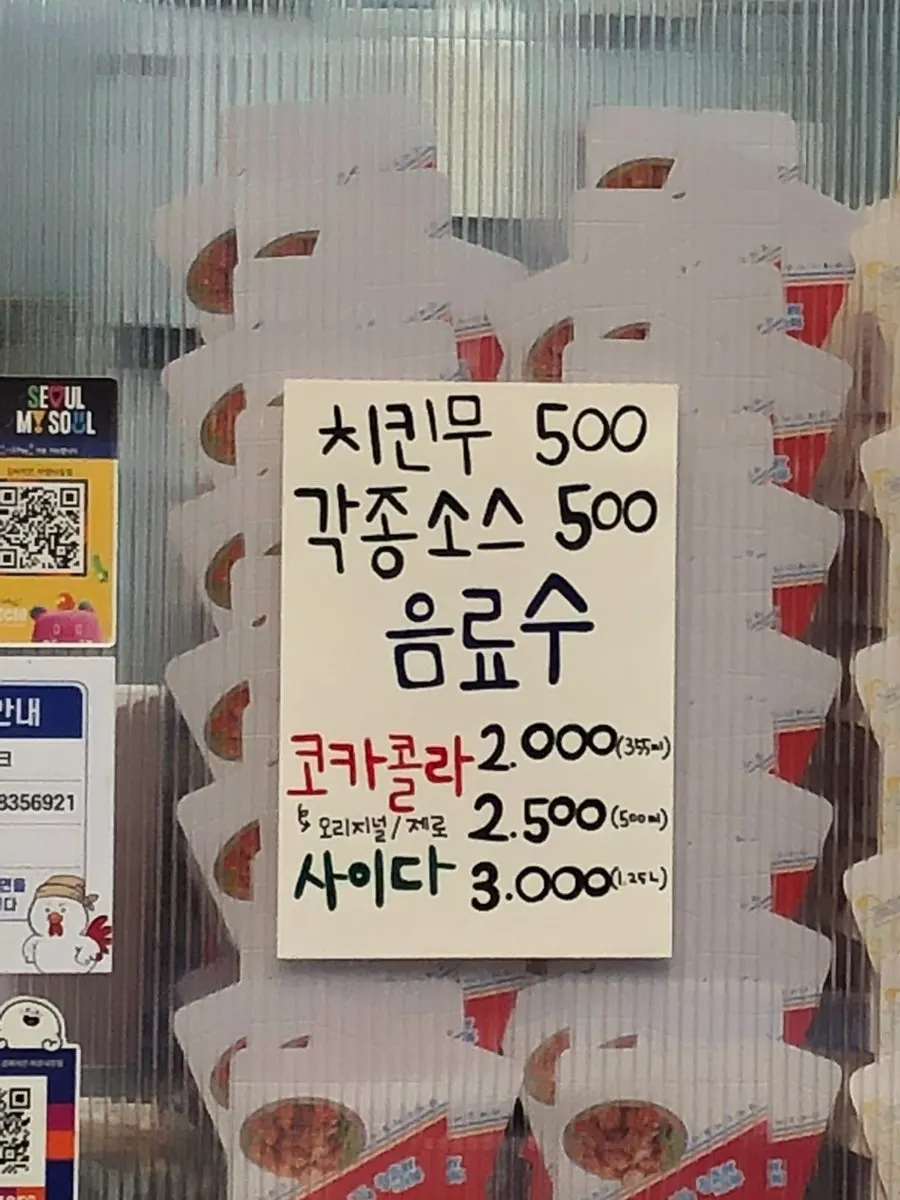 SEOUL
MY SOUL
안내
8356921
치킨무 500
각종소스 500
음료수
코카콜라 2.000(355ml)
↳ 오리지널/제로 2.500(500ml)
사이다 3.000(1.25L)